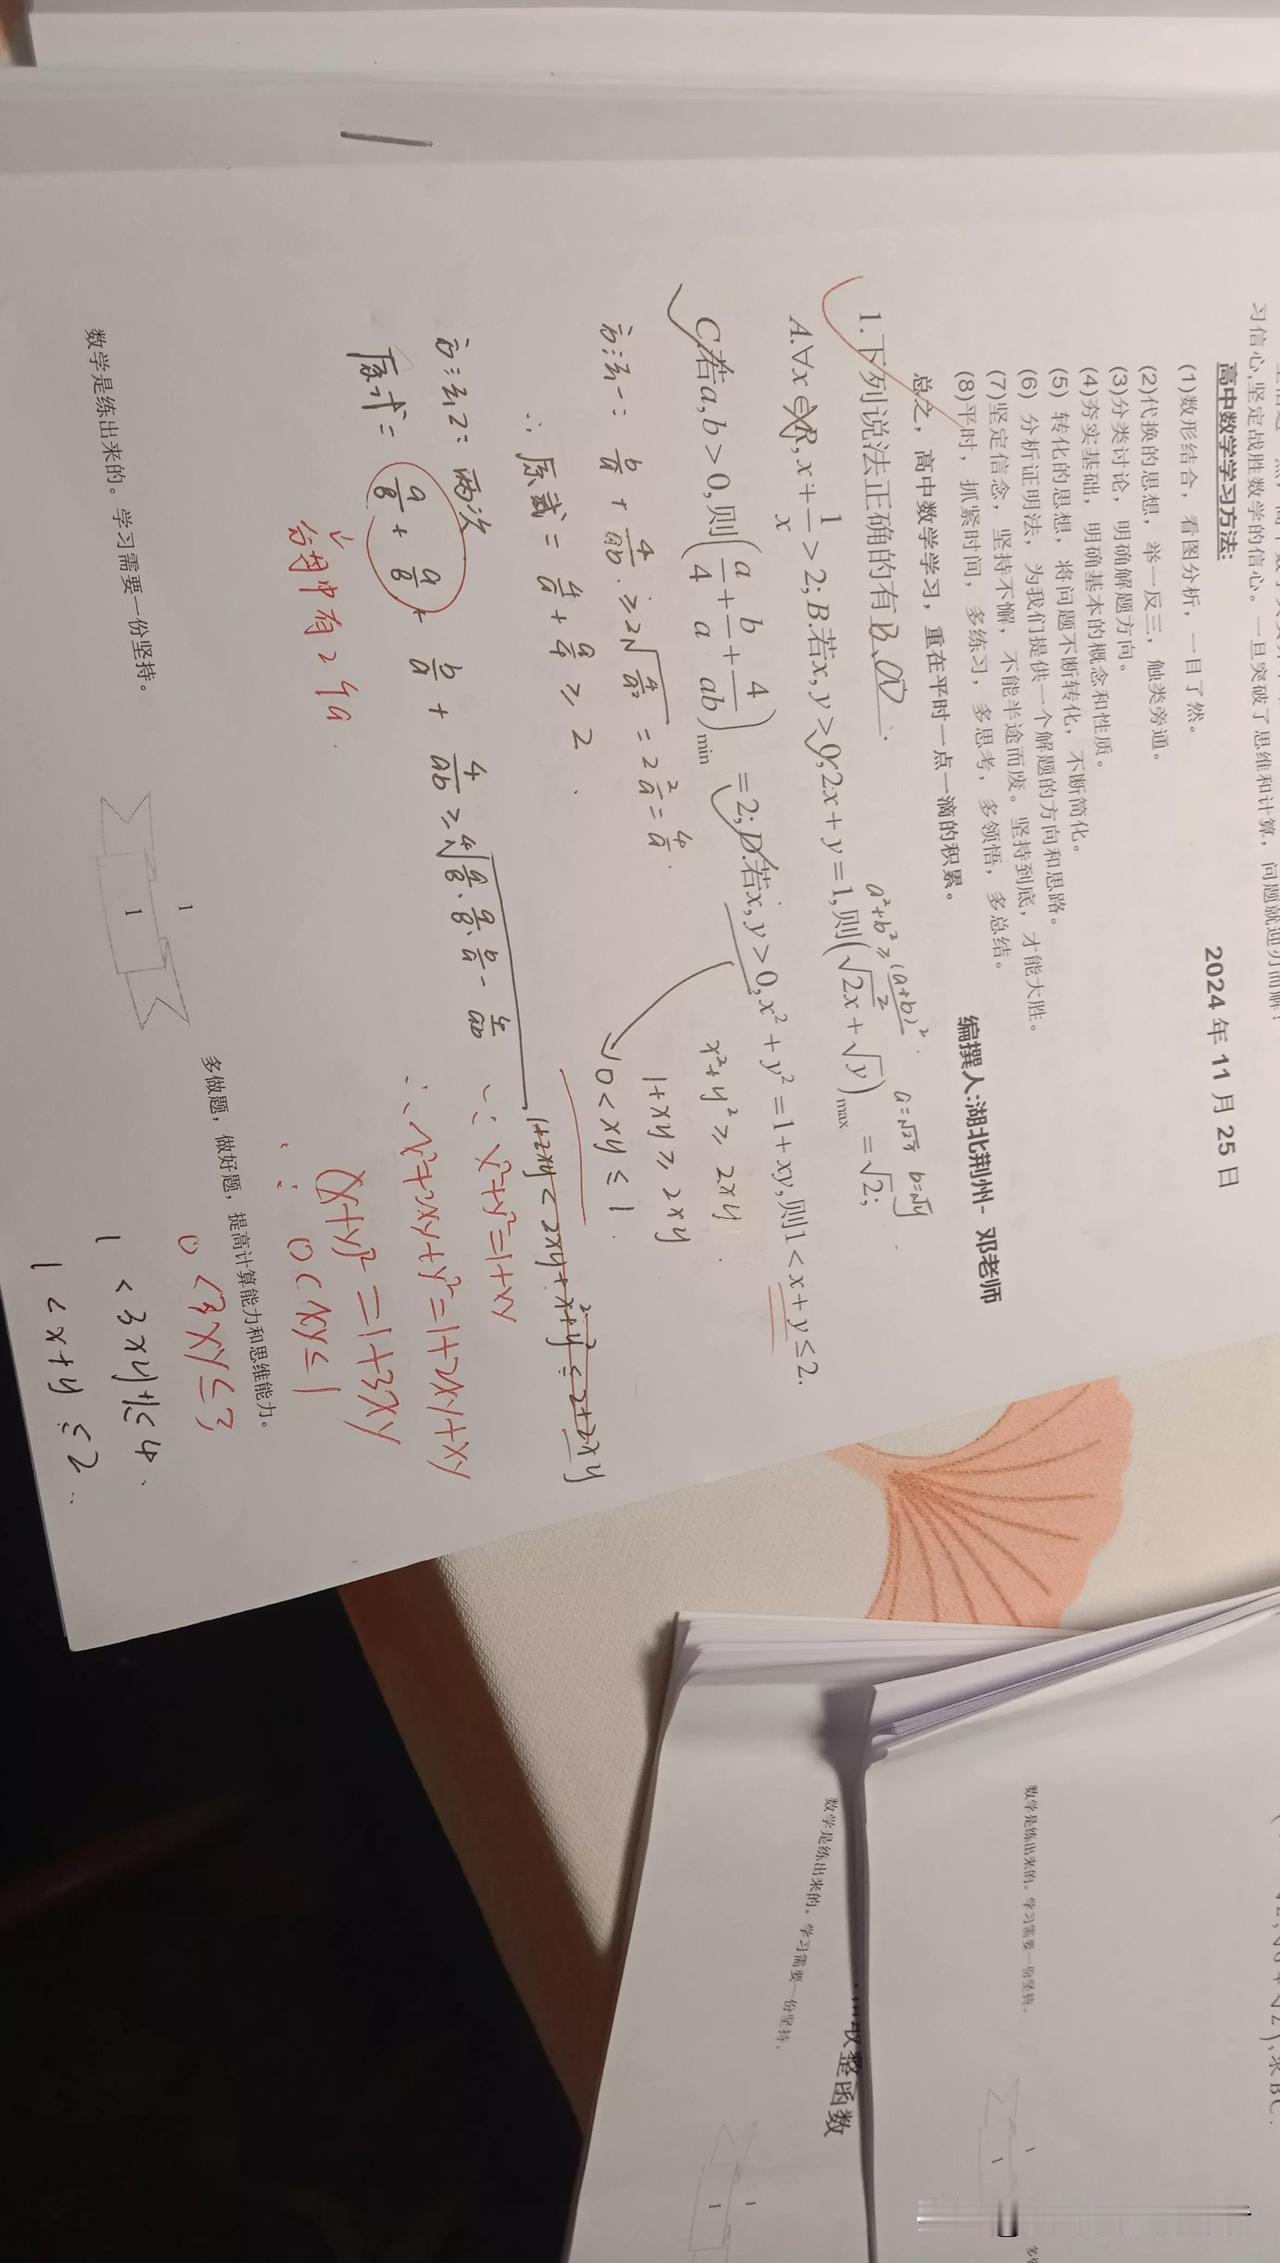 习信心,坚定战胜数学的信心。一旦突破了思维和计算,问题就迎刃而解!
高中数学学习方法: 2024 年 11 月 25 日
(1)数形结合,看图分析,一目了然。
(2)代换的思想,举一反三,触类旁通。
(3)分类讨论,明确解题方向。
(4)夯实基础,明确基本的概念和性质。
(5) 转化的思想,将问题不断转化,不断简化。
(6) 分析证明法,为我们提供一个解题的方向和思路。
(7)坚定信念,坚持不懈,不能半途而废。坚持到底,才能大胜。
(8)平时,抓紧时间,多练习,多思考,多领悟,多总结。
总之,高中数学学习,重在平时一点一滴的积累。 编撰人:湖北荆州- 邓老师
a²+b²≥(a+b)²/2. a=√2x b=√y
1.下列说法正确的有B、CD.
A.∀x∈R,x+1/x>2;B.若x,y>0,2x+y=1,则(√2x+√y)max=√2;
C.若a,b>0,则(a/4+b/a+4/ab)min=2;D.若x,y>0,x²+y²=1+xy,则1<x+y≤2.
x²+y²≥2xy.
1+xy≥2xy
0<xy≤1.
方法一:b/a+4/ab.≥2√4/a²=2 2/a=4/a.
∴原式=4/a+a/4≥2.
1+2xy<2xy+x²+y²≤2+2xy
方法2:两次
原式=a/8+a/8+b/a+4/ab≥⁴√a/8·a/8·b/a·4/ab
分母中有2个a.
∵x²+y²=1+xy
∴x²+2xy+y²=1+2xy+xy
(x+y)²=1+3xy
∴0<xy≤1
0<3xy≤3
1<3xy+1≤4.
1<x+y≤2.
数学是练出来的。学习需要一份坚持。
1
1
多做题,做好题,提高计算能力和思维能力。
数学是练出来的。学习需要一份坚持。
1
1
数学是练出来的。学习需要一份坚持。
取整函数
1
1